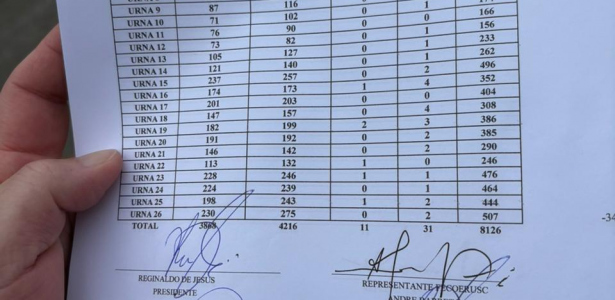 URNA 9 87 116
URNA 10 71 102 0 1
URNA 11 76 90 0 0 166
URNA 12 73 82 0 1 156
URNA 13 105 127 0 1 233
URNA 14 121 140 0 1 262
URNA 15 237 257 0 2 496
URNA 16 174 173 1 4 352
URNA 17 201 203 0 0 404
URNA 18 147 157 0 4 308
URNA 19 182 199 2 3 386
URNA 20 191 192 0 2 385
URNA 21 146 142 0 2 290
URNA 22 113 132 1 0 246
URNA 23 228 246 1 1 476
URNA 24 224 239 0 1 464
URNA 25 198 243 1 2 444
URNA 26 230 275 0 2 507
TOTAL 3868 4216 11 31 8126
REGINALDO DE JESUS
PRESIDENTE
REPRESENTANTE FECOERUSC
ANDRE